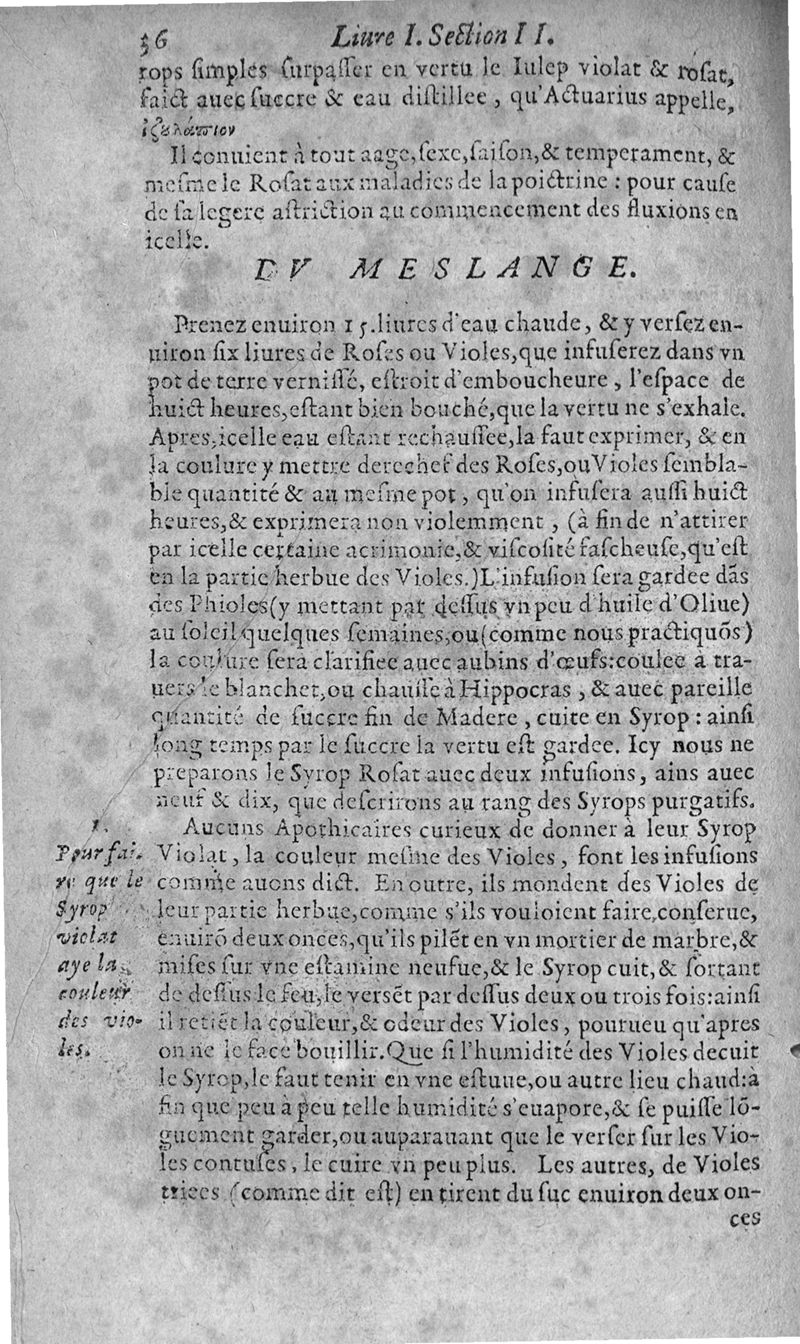 36 Liure I. Section II.
rops simples surpasser en vertu le Iulep violat & rosat,
faict auec succre & eau distillee, qu'Actuarius appelle,
ἰζȣλάπιον
Il conuient à tout aage, sexe, saison, & temperament, &
mesme le Rosat aux maladies de la poictrine : pour cause
de sa legere astriction au commencement des fluxions en
icelle.
DV MESLANGE.
Prenez enuiron 15. liures d'eau chaude, & y versez en-
uiron six liures de Roses ou Violes, que infuserez dans vn
pot de terre vernissé, estroit d'emboucheure, l'espace de
huict heures, estant bien bouché, que la vertu ne s'exhale.
Apres, icelle eau estant rechauffee, la faut exprimer, & en
la coulure y mettre derechef des Roses, ou Violes sembla-
ble quantité & au mesme pot, qu'on infusera aussi huict
heures, & exprimera non violemment, (à fin de n'attirer
par icelle certaine acrimonie, & viscosité fascheuse, qu'est
en la partie herbue des Violes.) L'infusion sera gardee dãs
des Phioles (y mettant par dessus vn peu d'huile d'Oliue)
au soleil quelques semaines, ou (comme nous practiquõs)
la coulure sera clarifiee auec aubins d'œufs: coulee à tra-
uers le blanchet, ou chausse à Hippocras, & auec pareille
quantité de succre fin de Madere, cuite en Syrop : ainsi
long temps par le succre la vertu est gardee. Icy nous ne
preparons le Syrop Rosat auec deux infusions, ains auec
neuf & dix, que descrirons au rang des Syrops purgatifs.
1.
Pour fai-
re que le
Syrop
violat
aye la
couleur
des vio-
les.
Aucuns Apothicaires curieux de donner à leur Syrop
Violat, la couleur mesme des Violes, font les infusions
comme auons dict. En outre, ils mondent des Violes de
leur partie herbue, comme s'ils vouloient faire conserue,
enuirõ deux onces, qu'ils pilẽt en vn mortier de marbre, &
mises sur vne estamine neufue, & le Syrop cuit, & sortant
de dessus le feu, le versẽt par dessus deux ou trois fois: ainsi
il retiẽt la couleur, & odeur des Violes, pourueu qu'apres
on ne le face bouillir. Que si l'humidité des Violes decuit
le Syrop, le faut tenir en vne estuue, ou autre lieu chaud: à
fin que peu à peu telle humidité s'euapore, & se puisse lõ-
guement garder, ou auparauant que le verser sur les Vio-
les contuses, le cuire vn peu plus. Les autres, de Violes
triees (comme dit est) en tirent du suc enuiron deux on-
ces